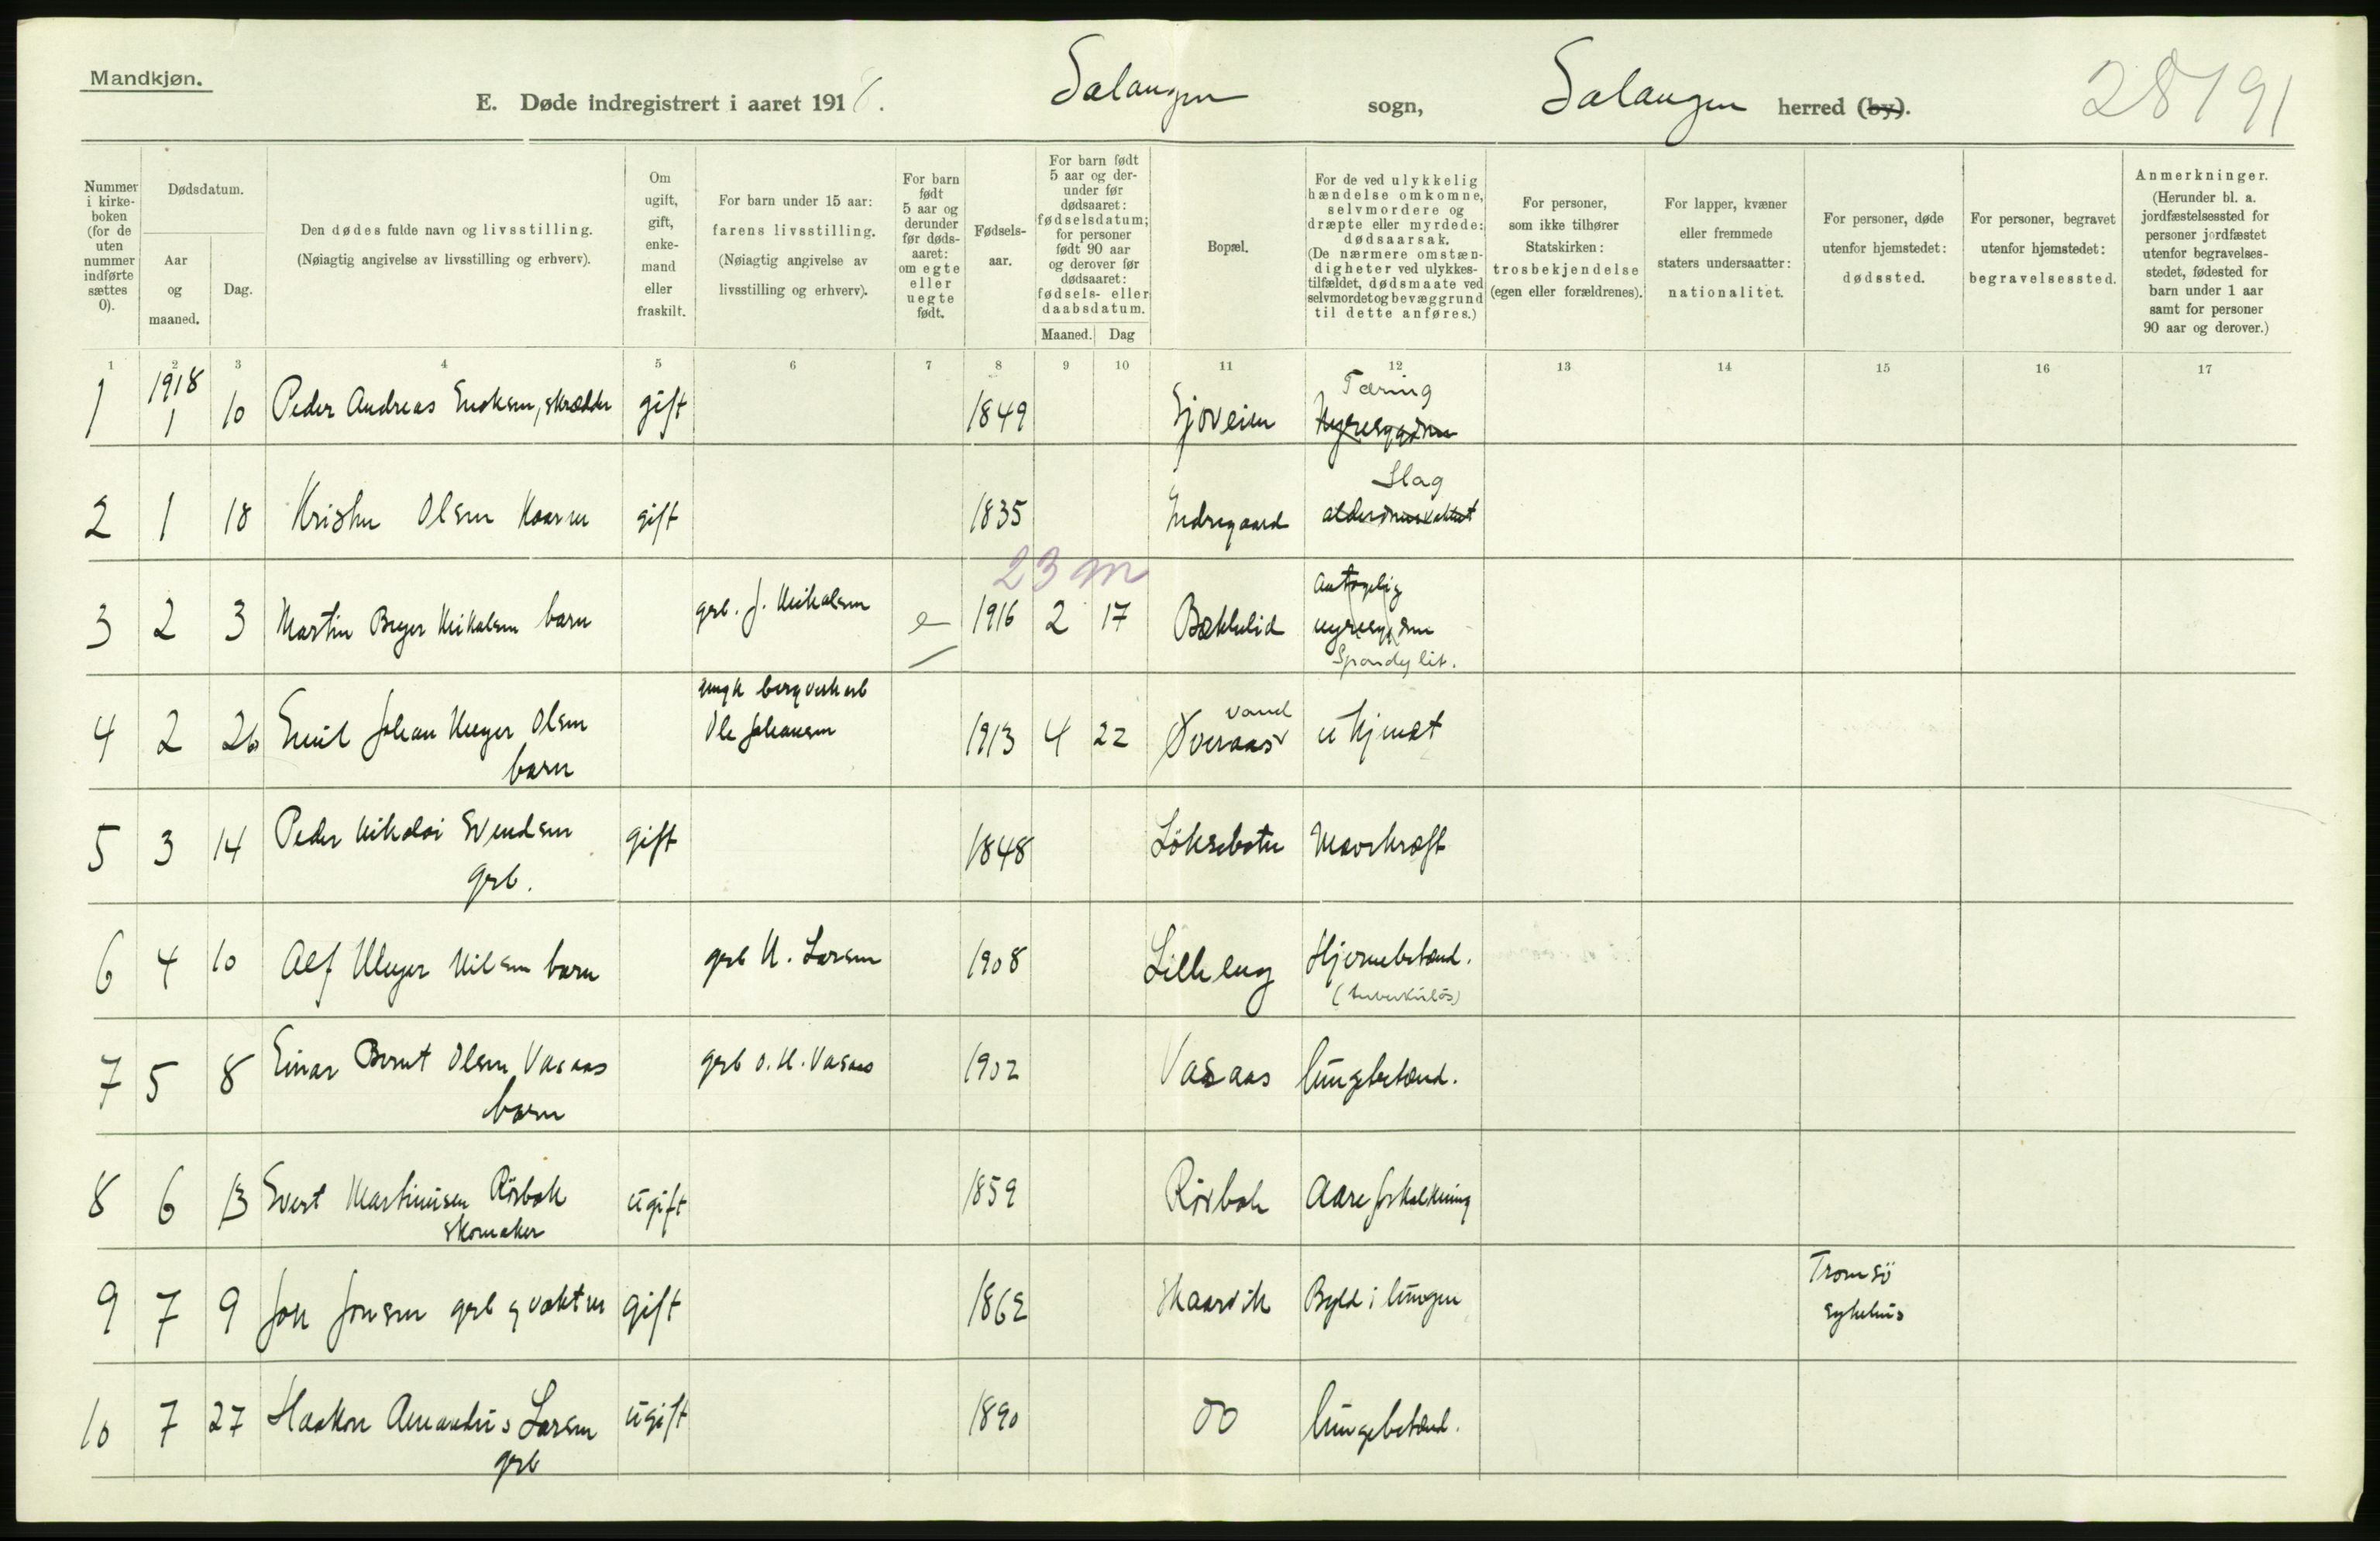 Mandkjøn.
E. Døde indregistrert i aaret 1918. Salangen sogn, Salangen herred (by).
28191
Nummer i kirkeboken (for de uten nummer indførte sættes 0).
Dødsdatum.
Aar og maaned.
Dag.
Den dødes fulde navn og livsstilling.
(Nøiagtig angivelse av livsstilling og erhverv).
Om ugift, gift, enkemand eller fraskilt.
For barn under 15 aar: farens livsstilling.
(Nøiagtig angivelse av livsstilling og erhverv).
For barn født 5 aar og derunder før dødsaaret: om egte eller uegte født.
Fødselsaar.
For barn født 5 aar og derunder før dødsaaret: fødselsdatum; for personer født 90 aar og derover før dødsaaret: fødsels- eller daabsdatum.
Maaned. Dag
Bopæl.
For de ved ulykkelig hændelse omkomne, selvmordere og dræpte eller myrdede: dødsaarsak.
(De nærmere omstændigheter ved ulykkestilfældet, dødsmaate ved selvmordet og bevæggrund til dette anføres.)
For personer, som ikke tilhører Statskirken: trosbekjendelse (egen eller forældrenes).
For lapper, kvæner eller fremmede staters undersaatter: nationalitet.
For personer, døde utenfor hjemstedet: dødssted.
For personer, begravet utenfor hjemstedet: begravelsessted.
Anmerkninger.
(Herunder bl. a. jordfæstelsessted for personer jordfæstet utenfor begravelsesstedet, fødested for barn under 1 aar samt for personer 90 aar og derover.)
1 2 3 4 5 6 7 8 9 10 11 12 13 14 15 16 17
1918
Tæring
1 1 10 Peder Andreas Enoksen, skrædder gift 1849 Sjøveien Nyresygdom
Slag
2 1 18 Olsen gift 1835 Indregaard
23 m
Antagelig
3 2 3 Martin Nikolsen barn grb. J. Nikolsen e 1916 2 17 nyresygdom
Spondylit.
bergverksarb
vand
4 2 26 Emil Johan Meyer Olsen Ole Johansen 1913 4 22 Øveraas ukjendt
barn
5 3 14 Peder Nikolai Svendsen gift 1848 Løksebotn Mavekræft
grb.
6 4 10 Alf Meyer Nilsen barn grb N. Larsen 1908 Lilleeng Hjernebetænd.
(tuberkuløs)
7 5 8 Einar Bernt Olsen Vasaas grb O. N. Vasaas 1902 Vasaas lungebetænd.
barn
8 6 13 Evert Martinusen Rørbak ugift 1859 Rørbak Aareforkalkning
skomaker
Tromsø
9 7 9 Jon Jonsen grb og gift 1862 Haarvik Byld i lungen sykehus
10 7 27 Haakon Amandus Larsen ugift 1890 do lungebetænd.
grb